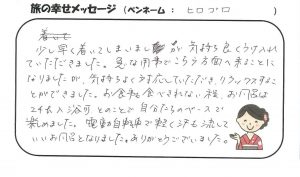 旅の幸せメッセージ （ペンネーム： ヒロブロ ）
着いて
少し早く着いてしまいましたが 気持ち良くうけ入れ
ていただきました。急な用事でこちら方面へ来ることに
なりましたが、気持ちよく対応していただき リラックスするこ
とができました。お食事も食べきれない程、お風呂は
24h入浴可とのことで自分たちのペースで
楽めました。電動自転車で軽く汗も流して
いいお風呂となりました。ありがとうございました。